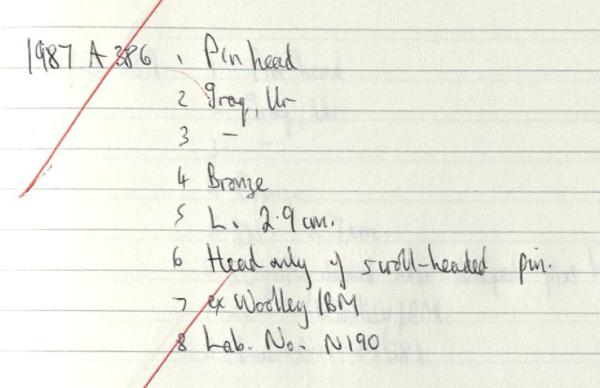 1987 A 386 1 Pin head
2 Iraq, Ur
3 –
4 Bronze
5 L. 2.9 cm.
6 Head only of scroll-headed pin.
7 ex Woolley / BM
8 Lab. No. N190